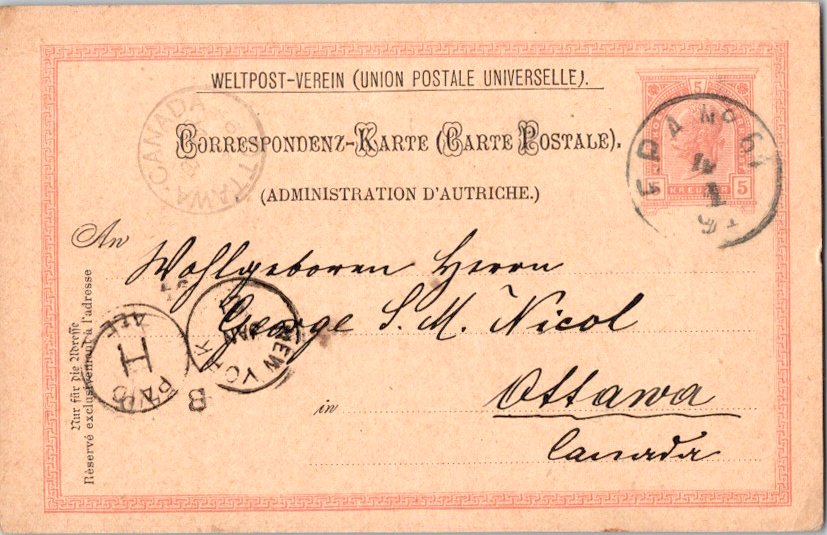 WELTPOST-VEREIN (UNION POSTALE UNIVERSELLE).
CORRESPONDENZ-KARTE (CARTE POSTALE).
(ADMINISTRATION D'AUTRICHE.)
5
KREUZER 5
CANADA OTTAWA
An Wohlgeboren Herrn
George S. M. Nicol
in Ottawa
Canada
Nur für die Adresse
Réservé exclusivement à l'adresse
NEW YORK
PAID
ALL
B